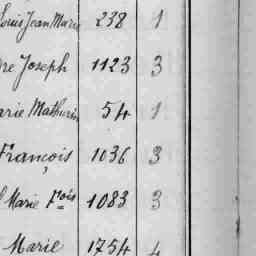 Louis Jean Marie 238 1
re Joseph 1123 3
arie Mathurin 54 1
François 1036 3
Marie Fois 1083 3
Marie 1754 4